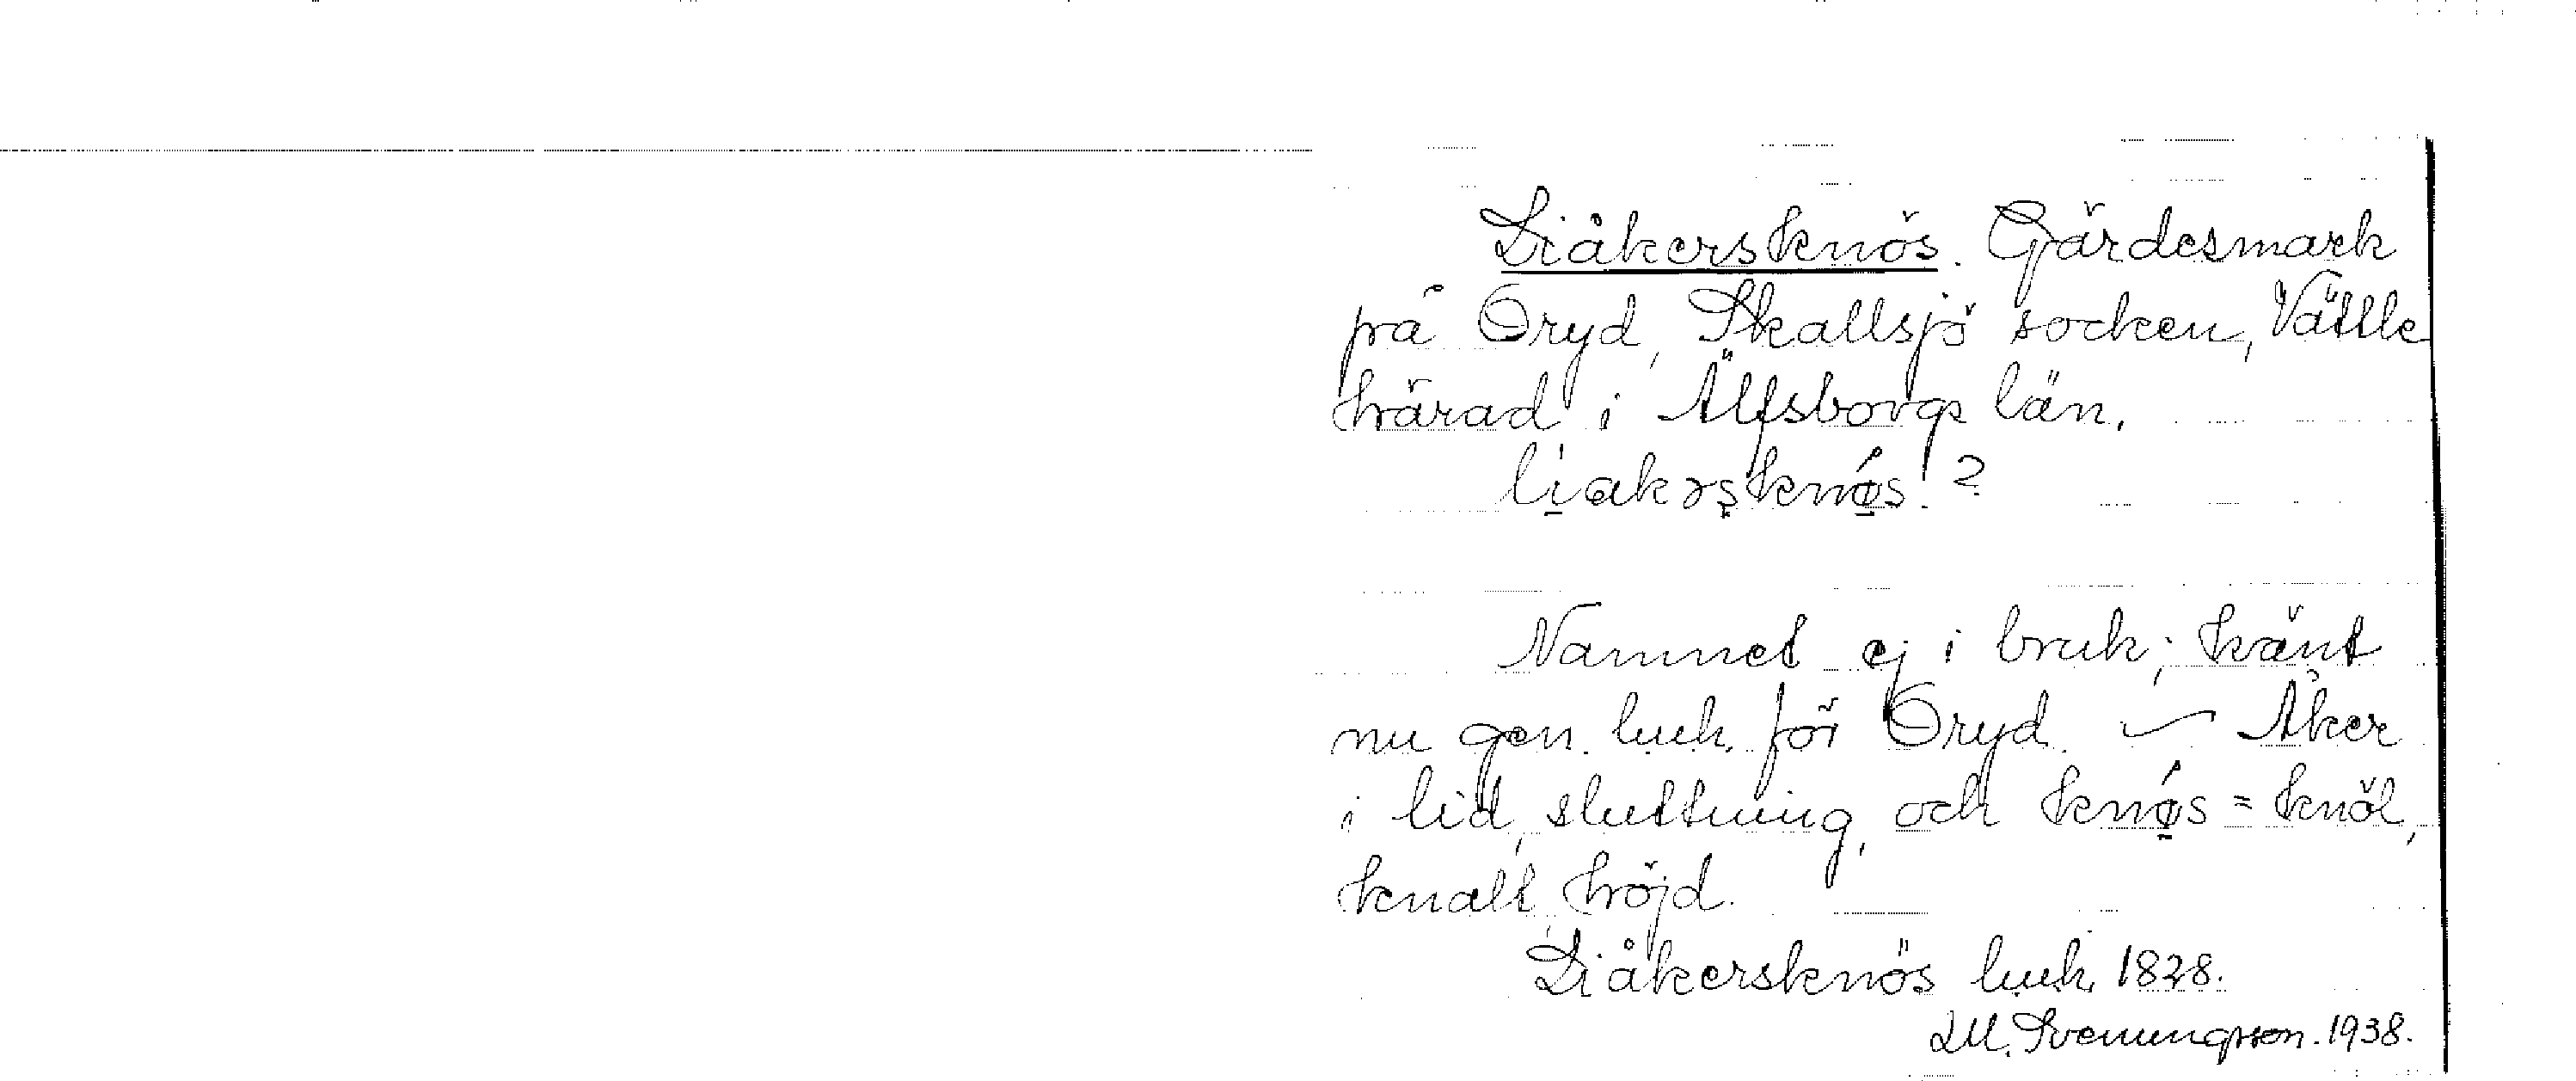 Liåkersknös. Gärdesmark
på Öryd, Skallsjö socken, Vättle
härad i Älfsborgs län.
Namnet ej i bruk; känt
nu gen. luh. för Öryd. ~ Åker
i lid, sluttning, och knǿs = knöl,
knalt, höjd.
Liåkersknös luh. 1828.
LM. Svenungsson. 1938.